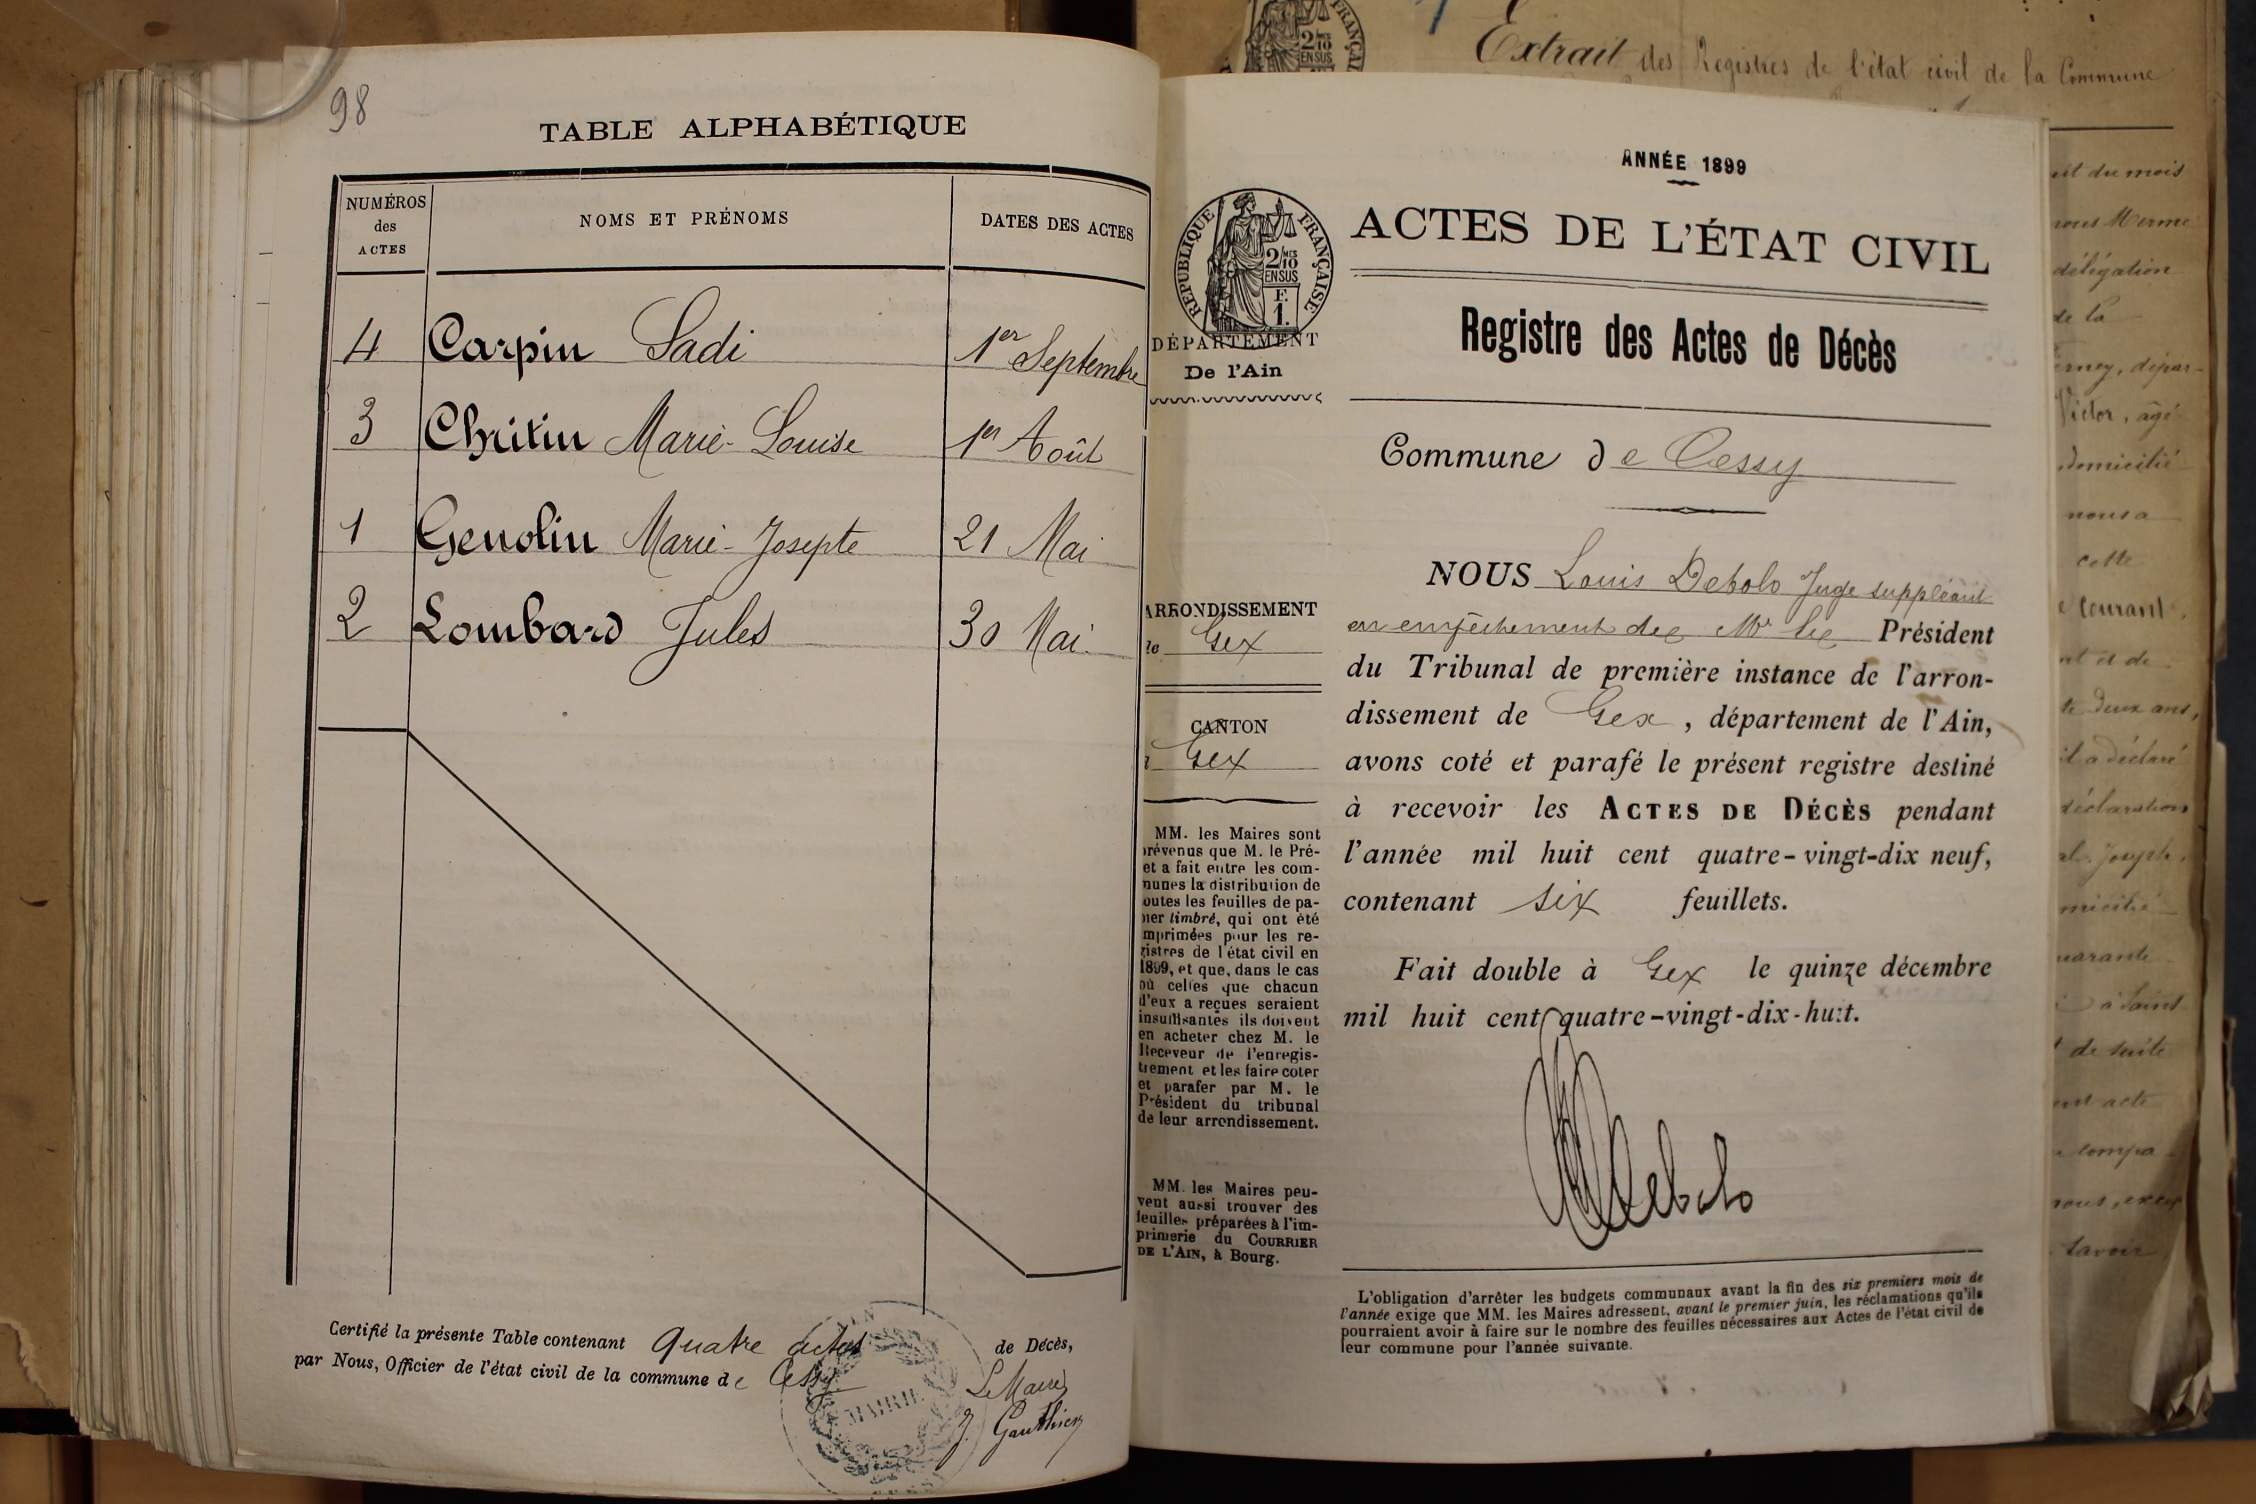 98
TABLE ALPHABÉTIQUE
NUMÉROS
des
ACTES
NOMS ET PRÉNOMS
DATES DES ACTES
4 Carpin Sadi 1er Septembre
3 Chritin Marie-Louise 1er Août
1 Genolin Marie-Josepte 21 Mai
2 Lombard Jules 30 Mai
Certifié la présente Table contenant quatre actes de Décès,
par Nous, Officier de l'état civil de la commune de Cessy
Le Maire
J. Gauthier
MAIRIE
AIN
ANNÉE 1899
RÉPUBLIQUE FRANÇAISE
2/10 MES
EN SUS
F.
1.
ACTES DE L'ÉTAT CIVIL
DÉPARTEMENT
De l'Ain
Registre des Actes de Décès
Commune de Cessy
ARRONDISSEMENT
de Gex
CANTON
Gex
MM. les Maires sont
prévenus que M. le Pré-
et a fait entre les com-
munes la distribution de
outes les feuilles de pa-
pier timbré, qui ont été
imprimées pour les re-
gistres de l'état civil en
1899, et que, dans le cas
où celles que chacun
d'eux a reçues seraient
insuffisantes ils doivent
en acheter chez M. le
Receveur de l'enregis-
trement et les faire coter
et parafer par M. le
Président du tribunal
de leur arrondissement.
MM. les Maires peu-
vent aussi trouver des
feuilles préparées à l'im-
primerie du COURRIER
DE L'AIN, à Bourg.
NOUS Louis Debolo Juge suppléant
en empêchement de Mr le Président
du Tribunal de première instance de l'arron-
dissement de Gex, département de l'Ain,
avons coté et parafé le présent registre destiné
à recevoir les ACTES DE DÉCÈS pendant
l'année mil huit cent quatre-vingt-dix neuf,
contenant six feuillets.
Fait double à Gex le quinze décembre
mil huit cent quatre-vingt-dix-huit.
Debolo
L'obligation d'arrêter les budgets communaux avant la fin des six premiers mois de
l'année exige que MM. les Maires adressent, avant le premier juin, les réclamations qu'ils
pourraient avoir à faire sur le nombre des feuilles nécessaires aux Actes de l'état civil de
leur commune pour l'année suivante.
FRANÇAISE
2/10 MES
EN SUS
Extrait des Registres de l'état civil de la Commune
du mois
nous Merme
délégation
de la
Ferney, dépar-
Victor, âgé
domicilié
nous a
cette
courant.
et de
deux ans,
il a déclaré
déclaration
Joseph,
quarante
à Saint
de suite
acte
compa
nous,
Savoir